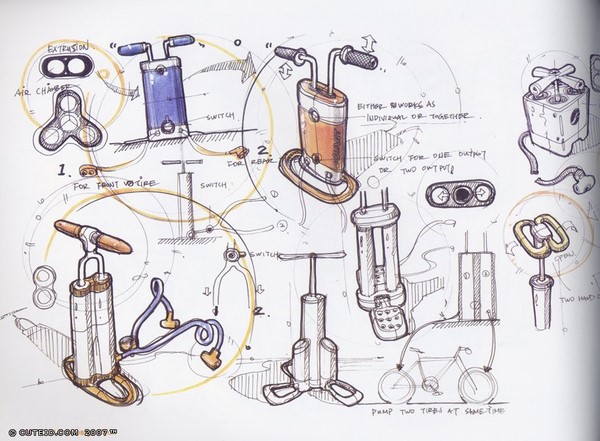 EXTRUSION
AIR CHAMBER
SWITCH
1.
2.
FOR FRONT TIRE
FOR REAR
SWITCH
EITHER WORKS AS
INDIVIDUAL OR TOGETHER
SWITCH FOR ONE OUTPUT
OR TWO OUTPUT
SWITCH
2.
OPEN
TWO HAND
PUMP TWO TIRES AT SAME TIME
© CUTEID.COM 2007™